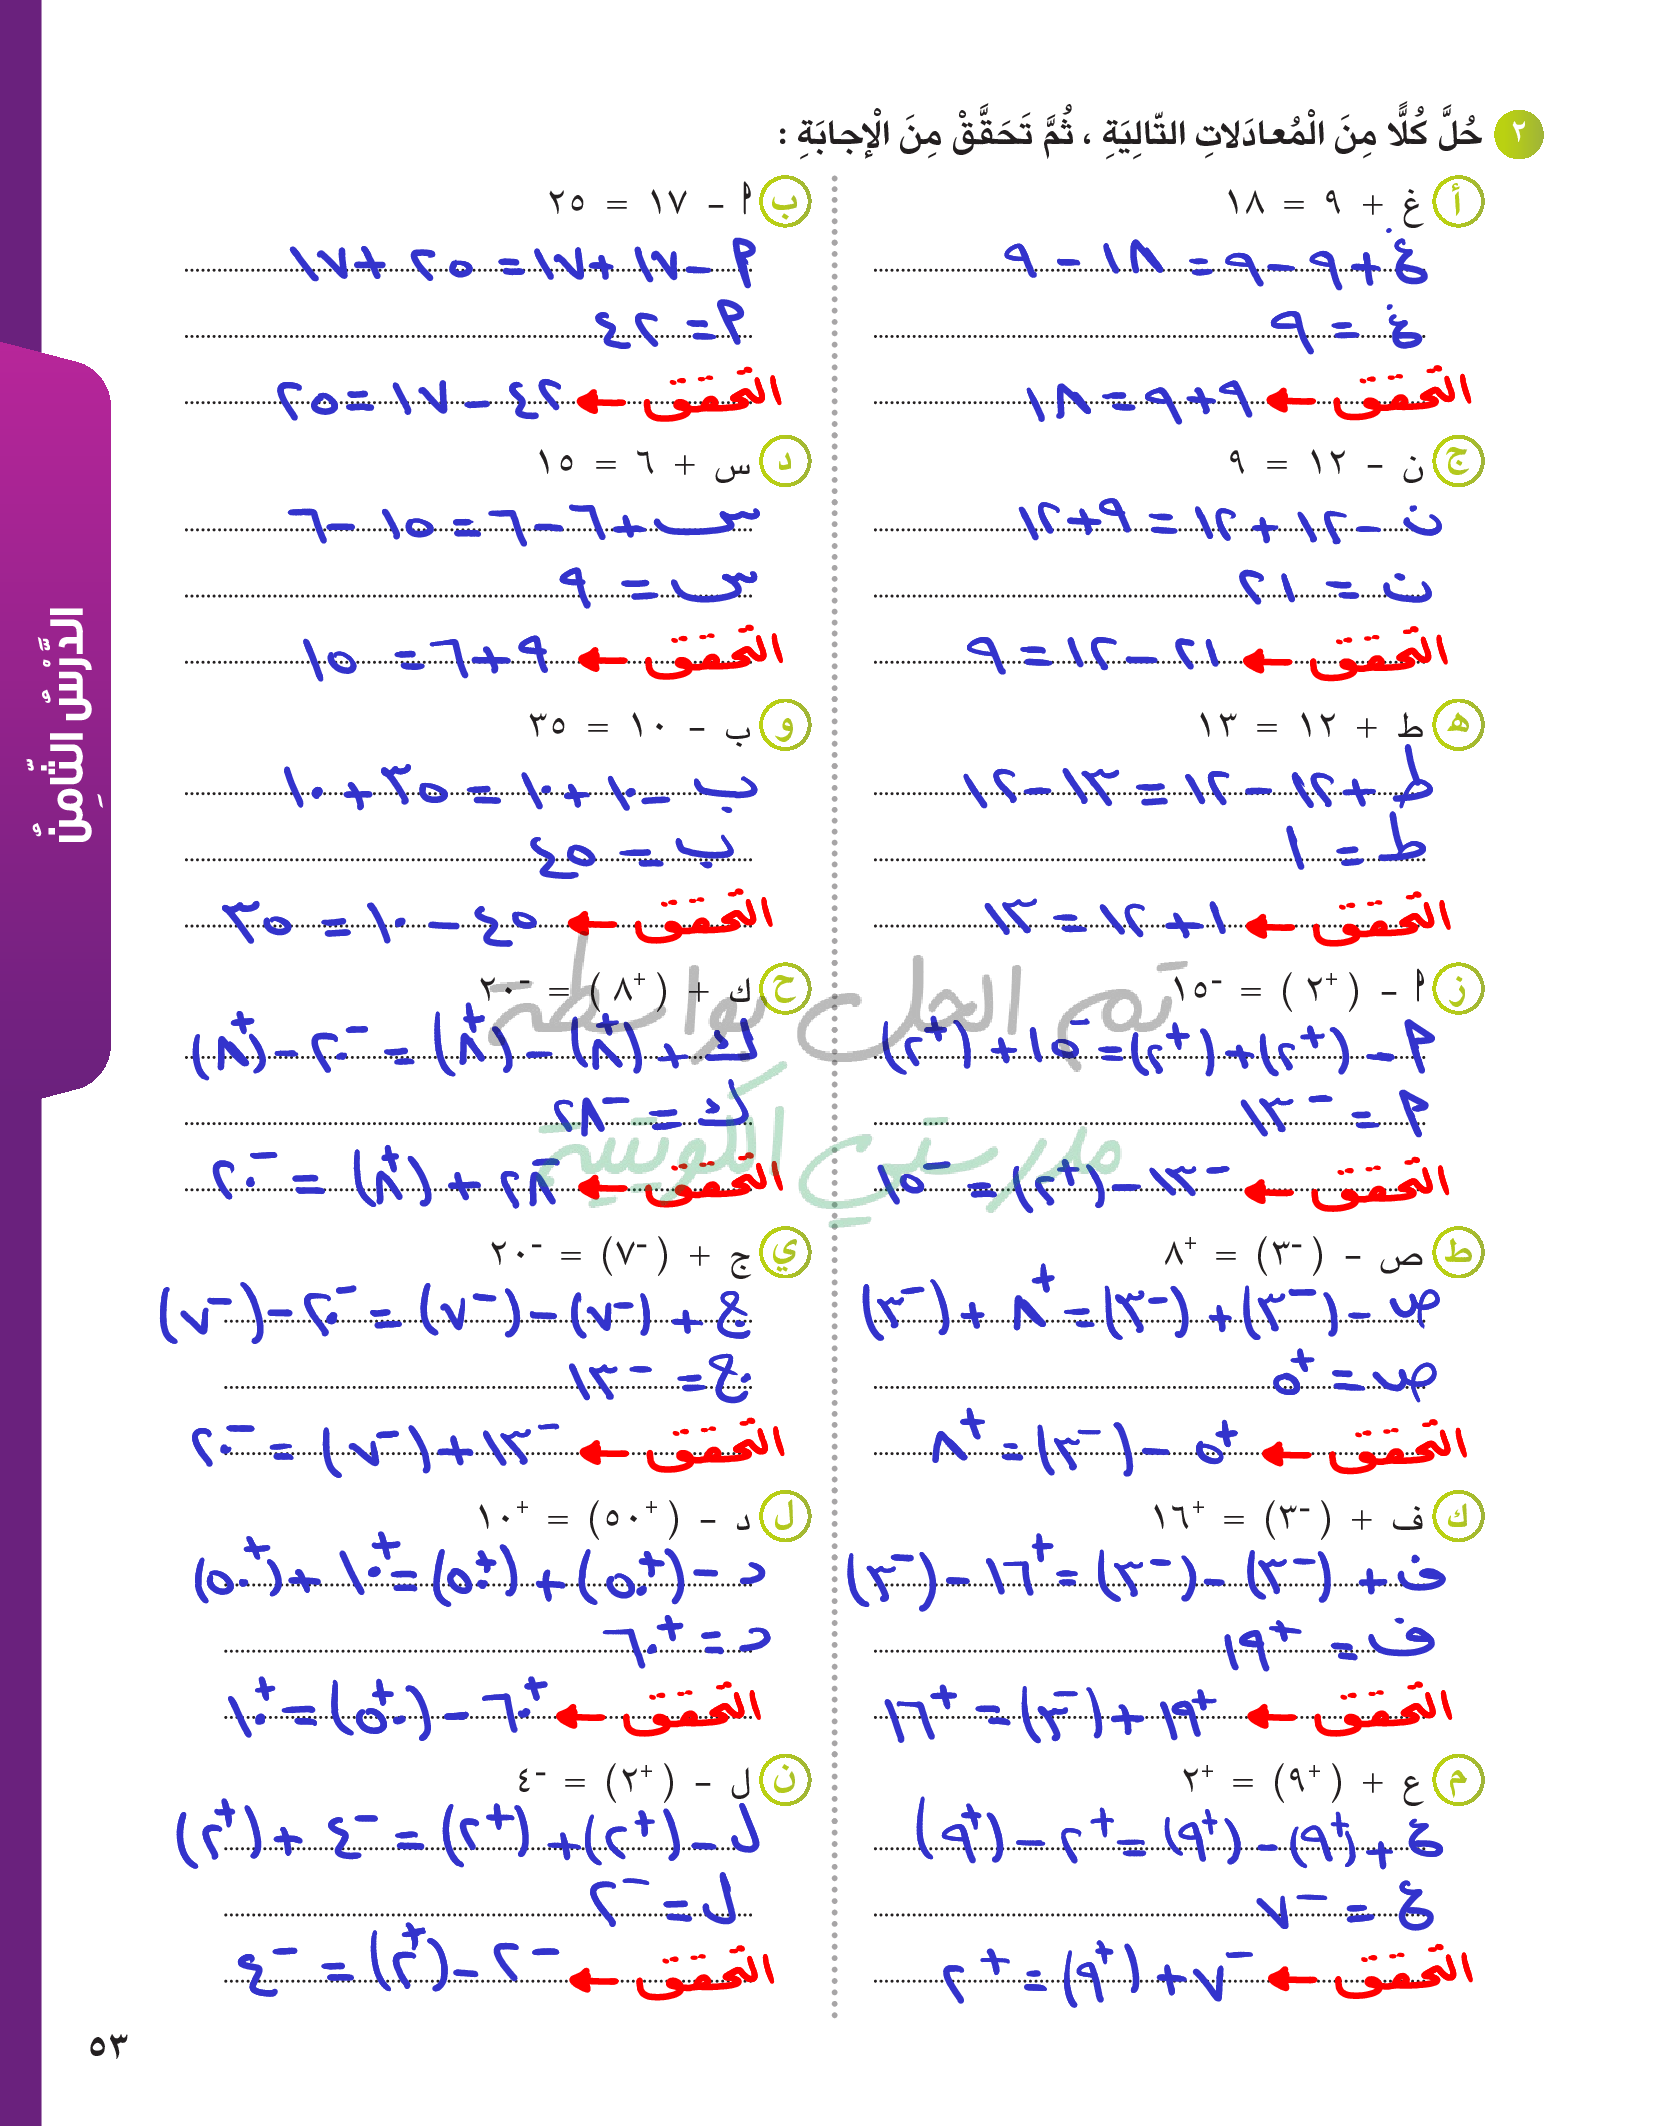 ٢ حُلَّ كُلًّا مِنَ الْمُعادَلاتِ التّالِيَةِ ، ثُمَّ تَحَقَّقْ مِنَ الْإجابَةِ :
أ غ + ٩ = ١٨
غ + ٩ - ٩ = ١٨ - ٩
غ = ٩
التحقق ← ٩ + ٩ = ١٨
ب أ - ١٧ = ٢٥
أ - ١٧ + ١٧ = ٢٥ + ١٧
أ = ٤٢
التحقق ← ٤٢ - ١٧ = ٢٥
ج ن - ١٢ = ٩
ن - ١٢ + ١٢ = ٩ + ١٢
ن = ٢١
التحقق ← ٢١ - ١٢ = ٩
د س + ٦ = ١٥
س + ٦ - ٦ = ١٥ - ٦
س = ٩
التحقق ← ٩ + ٦ = ١٥
ه ط + ١٢ = ١٣
ط + ١٢ - ١٢ = ١٣ - ١٢
ط = ١
التحقق ← ١ + ١٢ = ١٣
و ب - ١٠ = ٣٥
ب - ١٠ + ١٠ = ٣٥ + ١٠
ب = ٤٥
التحقق ← ٤٥ - ١٠ = ٣٥
ز أ - (⁺٢) = ⁻١٥
أ - (⁺٢) + (⁺٢) = ⁻١٥ + (⁺٢)
أ = ⁻١٣
التحقق ← ⁻١٣ - (⁺٢) = ⁻١٥
ح ك + (⁺٨) = ⁻٢٠
ك + (⁺٨) - (⁺٨) = ⁻٢٠ - (⁺٨)
ك = ⁻٢٨
التحقق ← ⁻٢٨ + (⁺٨) = ⁻٢٠
تم الحل بواسطة
مدرستي الكويتية
ط ص - (⁻٣) = ⁺٨
ص - (⁻٣) + (⁻٣) = ⁺٨ + (⁻٣)
ص = ⁺٥
التحقق ← ⁺٥ - (⁻٣) = ⁺٨
ي ج + (⁻٧) = ⁻٢٠
ج + (⁻٧) - (⁻٧) = ⁻٢٠ - (⁻٧)
ج = ⁻١٣
التحقق ← ⁻١٣ + (⁻٧) = ⁻٢٠
ك ف + (⁻٣) = ⁺١٦
ف + (⁻٣) - (⁻٣) = ⁺١٦ - (⁻٣)
ف = ⁺١٩
التحقق ← ⁺١٩ + (⁻٣) = ⁺١٦
ل د - (⁺٥٠) = ⁺١٠
د - (⁺٥٠) + (⁺٥٠) = ⁺١٠ + (⁺٥٠)
د = ⁺٦٠
التحقق ← ⁺٦٠ - (⁺٥٠) = ⁺١٠
م ع + (⁺٩) = ⁺٢
ع + (⁺٩) - (⁺٩) = ⁺٢ - (⁺٩)
ع = ⁻٧
التحقق ← ⁻٧ + (⁺٩) = ⁺٢
ن ل - (⁺٢) = ⁻٤
ل - (⁺٢) + (⁺٢) = ⁻٤ + (⁺٢)
ل = ⁻٢
التحقق ← ⁻٢ - (⁺٢) = ⁻٤
الدَّرْسُ الثّامِنُ
٥٣